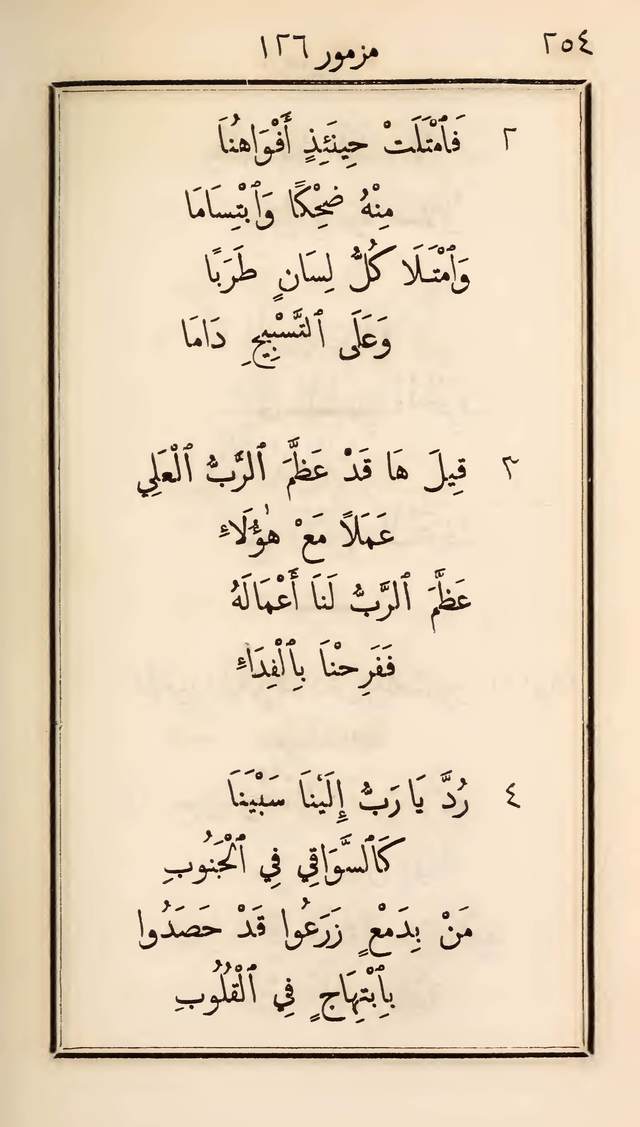 ٢٥٤ مزمور ١٢٦
٢ فَٱمْتَلَتْ حِينَئِذٍ أَفْوَاهُنَا
مِنْهُ ضِحْكًا وَٱبْتِسَامَا
وَٱمْتَلَا كُلُّ لِسَانٍ طَرَبًا
وَعَلَى ٱلتَّسْبِيحِ دَامَا
٣ قِيلَ هَا قَدْ عَظَّمَ ٱلرَّبُّ ٱلْعَلِي
عَمَلًا مَعْ هٰؤُلَاءِ
عَظَّمَ ٱلرَّبُّ لَنَا أَعْمَالَهُ
فَفَرِحْنَا بِٱلْفِدَاءِ
٤ رُدَّ يَا رَبُّ إِلَيْنَا سَبْيَنَا
كَٱلسَّوَاقِي فِي ٱلْجَنُوبِ
مَنْ بِدَمْعٍ زَرَعُوا قَدْ حَصَدُوا
بِٱبْتِهَاجٍ فِي ٱلْقُلُوبِ